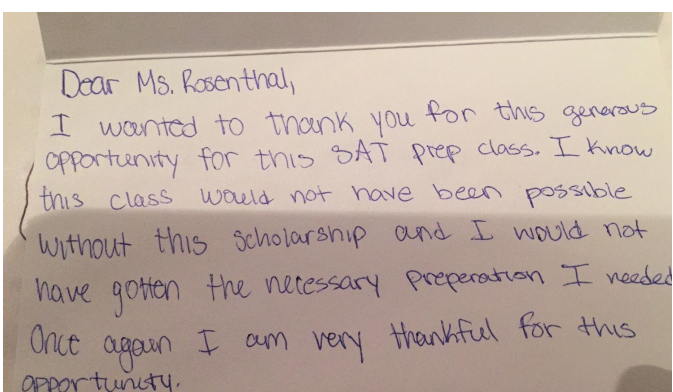 Dear Ms. Rosenthal,
I wanted to thank you for this generous
opportunity for this SAT prep class. I know
this class would not have been possible
without this scholarship and I would not
have gotten the necessary preperation I needed
Once again I am very thankful for this
opportunity.